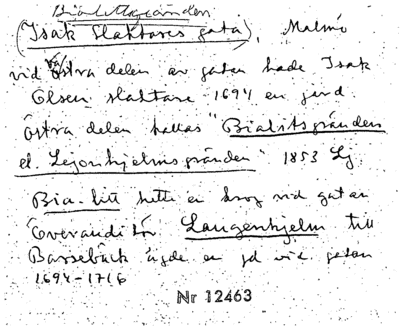 Bialittsgränden
(Isak Slaktares gata), Malmö
vid östra delen av gatan hade Isak
Olsen slaktare 1694 en gård.
Östra delen kallas "Bialitsgränden
el. Lejonhjelmsgränden" 1853 Lj
Bia-litt hette en krog vid gatan
Överauditör Laugenhjelm till
Barsebäck ägde en gd vid gatan
1694-1716
Nr 12463